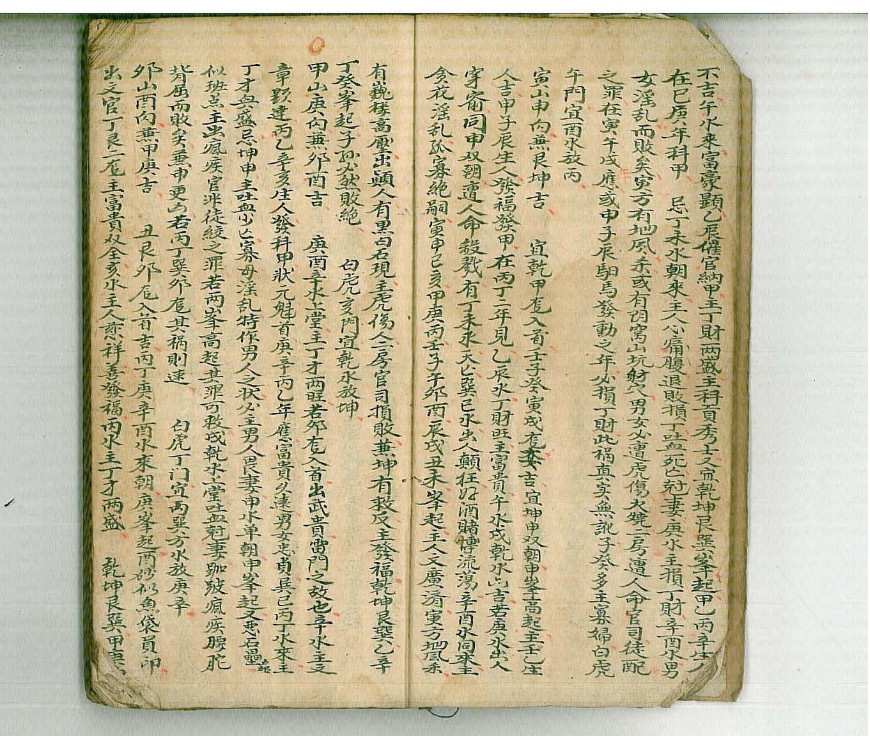 不吉午水來富豪顯乙辰催官納甲主丁財兩盛主科貢秀士又宜乾坤艮巽峯起甲乙丙辛生
在巳庚年科甲 忌丁未水朝來主人心痛腹退敗損丁吐血死亡尅妻庚水主損丁財辛酉水男
女淫乱而敗矣寅方有地風禾或有凹窩山坑射穴男女必遭虎傷火燒二房遭人命官司徒配
之罪在寅午戌應或申子辰駟馬發動之年必損丁財此禍真矣魚訛子癸多主寡婦白虎
午門宜酉水放丙
寅山申向兼艮坤吉 宜乾甲龙入首壬子癸寅戌龙吉宜坤申双朝申峯高起主壬乙生
人吉甲子辰生人發福發甲在丙丁二年見乙辰水丁財旺主富貴午水戌乾水凶吉若庚水出人
字甯同申双朝遭人命殺戮有丁未水夭亡巽巳水出人顛狂好酒賭博流蕩辛酉水同來主
貪花淫乱孤寡絶嗣寅申巳亥甲庚丙壬子午卯酉辰戌丑未峯起主人文廣濟寅方地風禾
有巍樣高壓出顛人有黒白石現主虎傷人二房官司損敗兼坤有救反主發福乾坤艮巽乙辛
丁癸峯起子孙必然敗絶 白虎亥門宜乾水放坤
甲山庚向兼卯酉吉 庚酉辛水上堂主丁才兩旺若卯龙入首出武貴雷門之故也辛水主文
章顕達丙乙辛亥生人發科甲狀元魁首庚辛丙乙年應富貴久遠男女忠貞巽巳丙丁水來主
丁才與盛忌坤申主吐血少亡寡母淫乱特作男人之状必主男人畏妻申水单朝申峯起又惡石壘
似班点主出瘋疾官非徒絞之罪若两峯高起其罪可救戌乾水上堂吐血尅妻跏跛瘋疾腰駝
背屈而敗矣兼申更巧若丙丁巽卯龙其禍則速 白虎丁门宜丙巽方水放庚辛
卯山酉向兼甲庚吉 丑艮卯龙入首吉丙丁庚辛酉水來朝庚峯起酉砂似魚袋員印
出文官丁艮二龙主富貴双全亥水主人慈祥善發福丙水主丁才两盛 乾坤艮巽甲庚